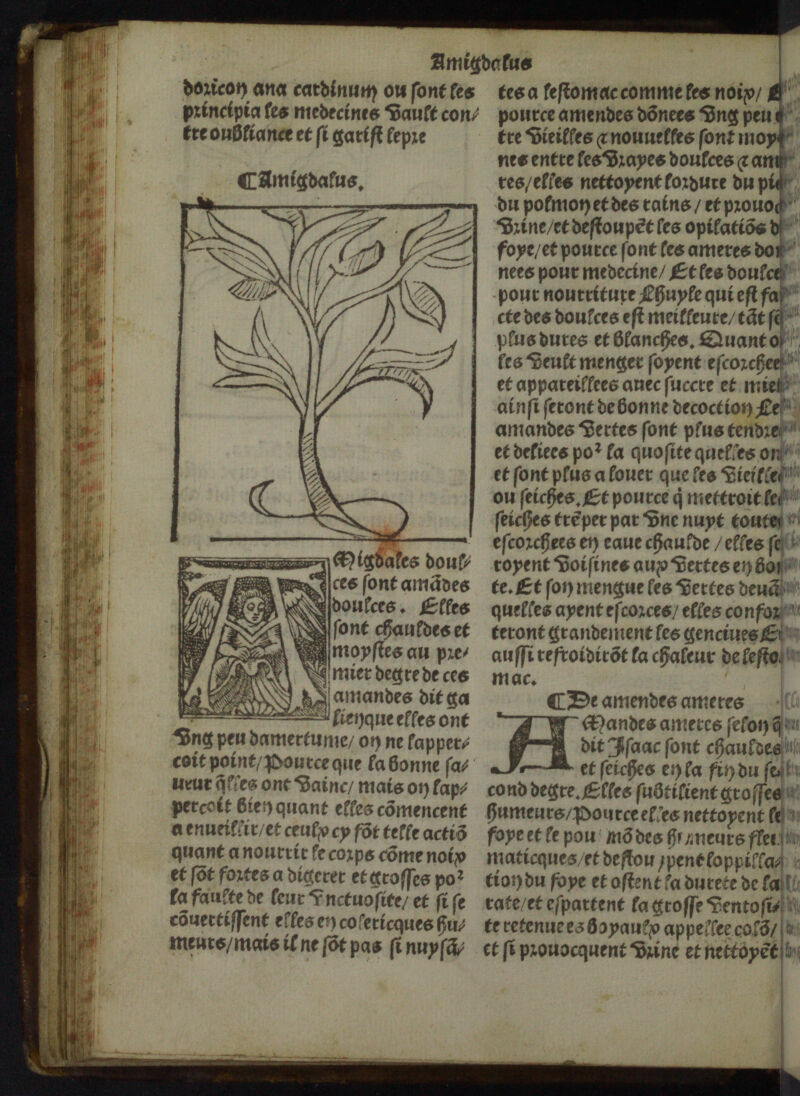 Amigdalus
doricon ana cardinum ou sont les
principia les medecines vault con⸗
tre oubliance et si garist lepre
¶Amigdalus.
AMigdales doul⸗
ces sont amādes
doulces. Elles
sont chauldes et
moystes au pre⸗
mier degre de ces
amandes dit ga
lien que elles ont
vng peu damertume/ on ne lapper⸗
coit point/ Pource que la bonne sa⸗
ueur q̄lles ont vainc/ mais on lap⸗
percoit bien quant elles cōmencent
a enueillir/ et ceulx cy sōt telle actiō
quant a nourrir le corps cōme noix
et sōt fortes a digerer et grosses po²
la faulte de leur vnctuosite/ et si se
cōuertissent elles en colericques hu⸗
meurs/ mais il ne sōt pas si nuysā⸗
tes a lestomac comme les noix/
pource amendes dōnees vng peu
tre vieilles ⁊ nouuelles sont moy
nes entre les vrayes doulces ⁊ am
res/ elles nettoyent lordure du pi
du polmon et des rains / et prouo
vrine/ et destoupēt les opilatiōs d
foye/ et pource sont les ameres do
nees pour medecine/ Et les doulce
pour nourriture Lhuyle qui est fa
cte des doulces est meilleure/ tāt
plus dures et blanches. Quant o
les veult menger soyent escorchee
et appareillees auec succre et miel
ainsi seront de bonne decoction Le
amandes vertes sont plus tendre
et deliees po² la quosite quelles on
et sont plus a louer que les vieille
ou seiches. Et pource q̄ mettroit le
seiches trēper par vne nuyt toute
escorchees en eaue chaulde / elles se
royent voisines aux vertes en bo
te. Et son mengue les vertes deuā
quelles ayent escorces/ elles confor
teront grandement les genciues E
aussi refroidirōt la chaleur de lesto.
mac.
¶De amendes ameres
AMandes ameres selon q̄
dit Isaac sont chauldes
et seiches en la fin du se⸗
cond degre. Elles subtilient grosses
humeurs/ Pource elles nettoyent le
foye et le pou mō des humeurs fle
maticques/ et destouppent loppilla⸗
tion du foye et ostent la durete de la
rate/ et espartent la grosse ventosi⸗
te retenue es boyaulx appellee colō/
et si prouocquent vrine et nettoyēt